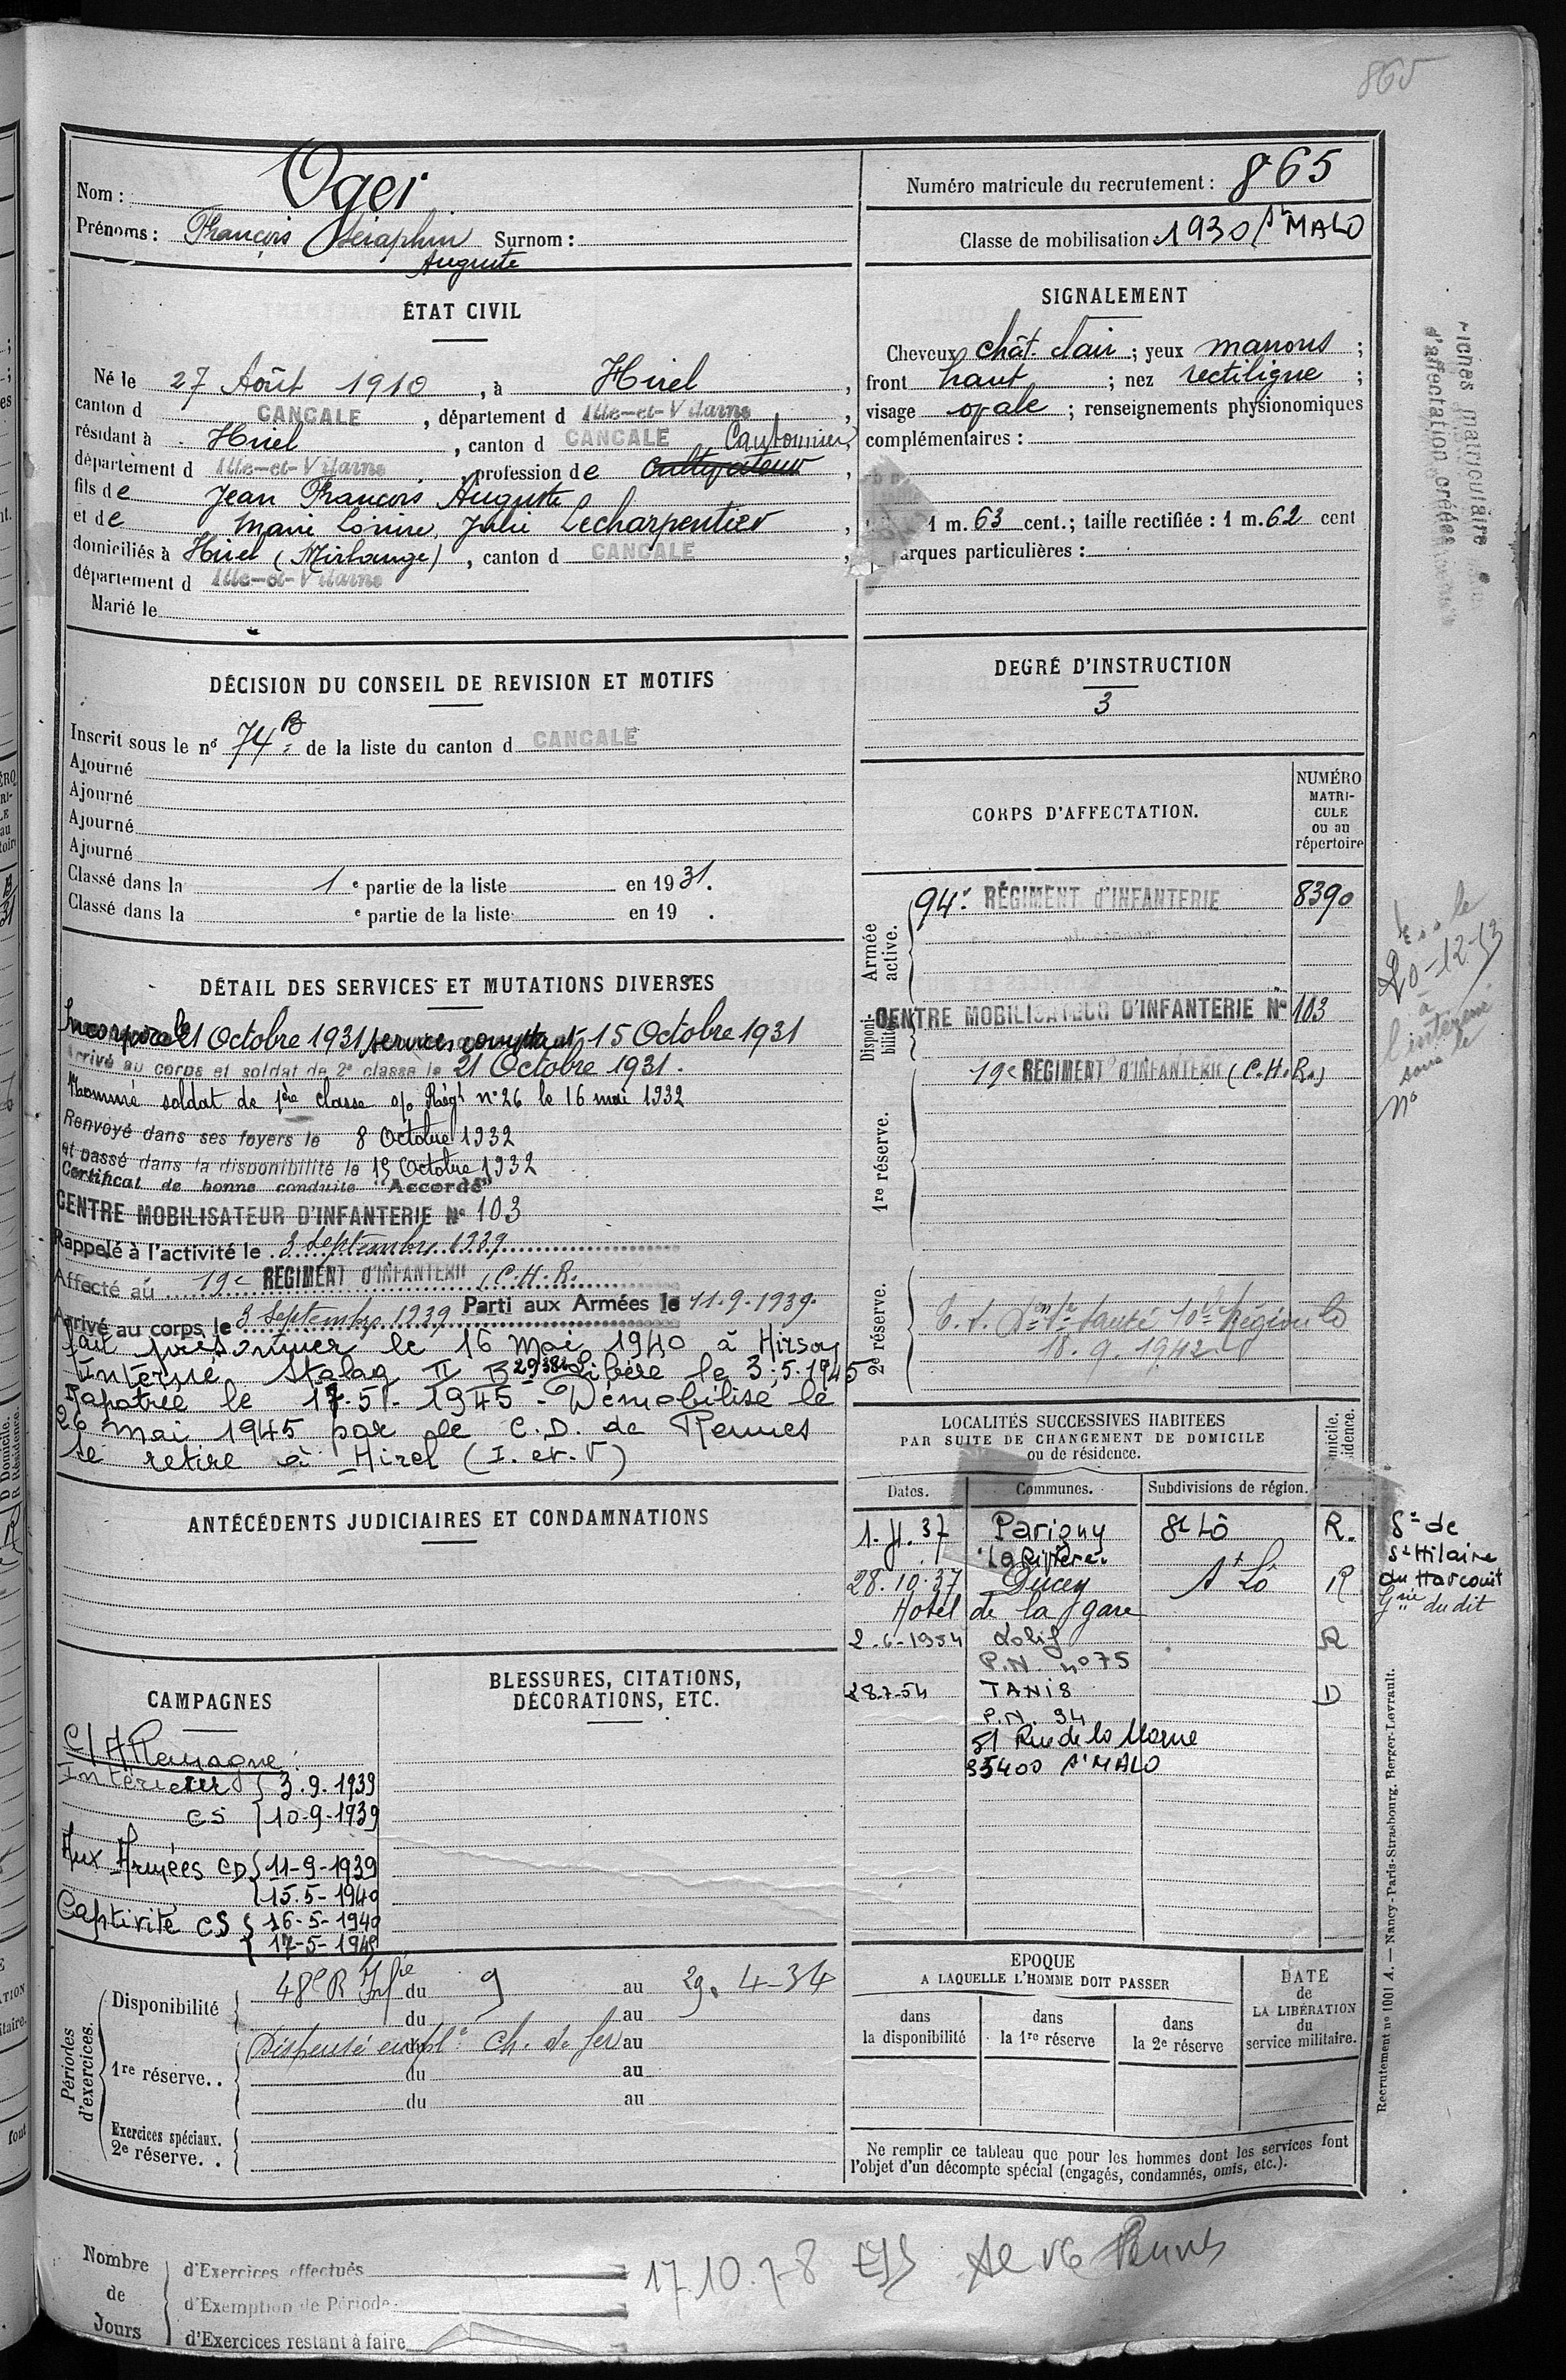 865
Nom : Oger
Prénoms : François Séraphin Surnom :
Auguste
ÉTAT CIVIL
Né le 27 Août 1910, à Hirel,
canton d CANCALE, département d Ille-et-Vilaine,
résidant à Hirel, canton d CANCALE Cantonnier,
département d Ille-et-Vilaine profession de cultivateur,
fils de Jean François Auguste
et de Marie Julie Lecharpentier,
domiciliés à Hirel (Mirlouge), canton d CANCALE,
département d Ille-et-Vilaine
Marié le
DÉCISION DU CONSEIL DE REVISION ET MOTIFS
Inscrit sous le nº 74 B de la liste du canton d CANCALE
Ajourné
Ajourné
Ajourné
Ajourné
Classé dans la 1 e partie de la liste en 1931.
Classé dans la e partie de la liste en 19 .
DÉTAIL DES SERVICES ET MUTATIONS DIVERSES
Incorporé le 21 Octobre 1931 services comptant 15 Octobre 1931
Arrivé au corps et soldat de 2e classe le 21 Octobre 1931.
Nommé soldat de 1ère classe o/o Régt nº 26 le 16 mai 1932
Renvoyé dans ses foyers le 8 Octobre 1932
et passé dans la disponibilité le 15 Octobre 1932
Certificat de bonne conduite "Accordé"
CENTRE MOBILISATEUR D'INFANTERIE Nº 103
Rappelé à l'activité le 3 Septembre 1939
Affecté au 19e REGIMENT D'INFANTERIE C.H.R.
Arrivé au corps le 3 Septembre 1939 Parti aux Armées le 11.9.1939.
fait prisonnier le 16 Mai 1940 à Hirson
Interné Stalag II B Libéré le 3.5.1945
Rapatrié le 17.5.1945 - Démobilisé le
26 mai 1945 par le C.D. de Rennes
se retire à Hirel (I. et. V)
ANTÉCÉDENTS JUDICIAIRES ET CONDAMNATIONS
CAMPAGNES
C/Allemagne :
Intérieur 3.9.1939
CS 10-9-1939
Aux Armées CD 11-9-1939
15.5-1940
Captivité CS 16-5-1940
17-5-1945
BLESSURES, CITATIONS,
DÉCORATIONS, ETC.
Périodes d'exercices.
Disponibilité 48e R Infie du 9 au 29.4-34
du au
1re réserve.. Dispensé empl. Ch. de fer au
du au
du au
Exercices spéciaux.
2e réserve. .
Numéro matricule du recrutement : 865
Classe de mobilisation : 1930 St MALO
SIGNALEMENT
Cheveux chât. clair ; yeux marrons ;
front haut ; nez rectiligne ;
visage ovale ; renseignements physionomiques
complémentaires :
1 m. 63 cent. ; taille rectifiée : 1 m. 62 cent
arques particulières :
DEGRÉ D'INSTRUCTION
3
CORPS D'AFFECTATION.
NUMÉRO
MATRI-
CULE
ou au
répertoire
Armée active.
94e RÉGIMENT d'INFANTERIE 8390
Disponibilité
CENTRE MOBILISATEUR D'INFANTERIE Nº 103
1re réserve.
19e REGIMENT D'INFANTERIE (C.H.R.)
2e réserve.
Santé 10e Région
18.9.1942
LOCALITÉS SUCCESSIVES HABITÉES
PAR SUITE DE CHANGEMENT DE DOMICILE
ou de résidence.
Dates. Communes. Subdivisions de région.
37 Parigny St Lô R.
28.10.37 Ducey St Lô R
Hotel de la gare
2.6-1954 Lolif R
P.N. nº 75
28.7-54 TANIS D
P.N. 94
51 Rue de la Marne
35400 St MALO
de
St Hilaire
du Harcouët
Gnie du dit
EPOQUE
A LAQUELLE L'HOMME DOIT PASSER
dans
la disponibilité
dans
la 1re réserve
dans
la 2e réserve
DATE
de
LA LIBÉRATION
du
service militaire.
Ne remplir ce tableau que pour les hommes dont les services font
l'objet d'un décompte spécial (engagés, condamnés, omis, etc.).
Fiches matriculaire
d'affectation créées
le
à
l'intéressé
sous le
Nº
Recrutement nº 1001 A. — Nancy-Paris-Strasbourg, Berger-Levrault.
Nombre
de
Jours
d'Exercices effectués
d'Exemption de Période
d'Exercices restant à faire
17.10.78 Rennes